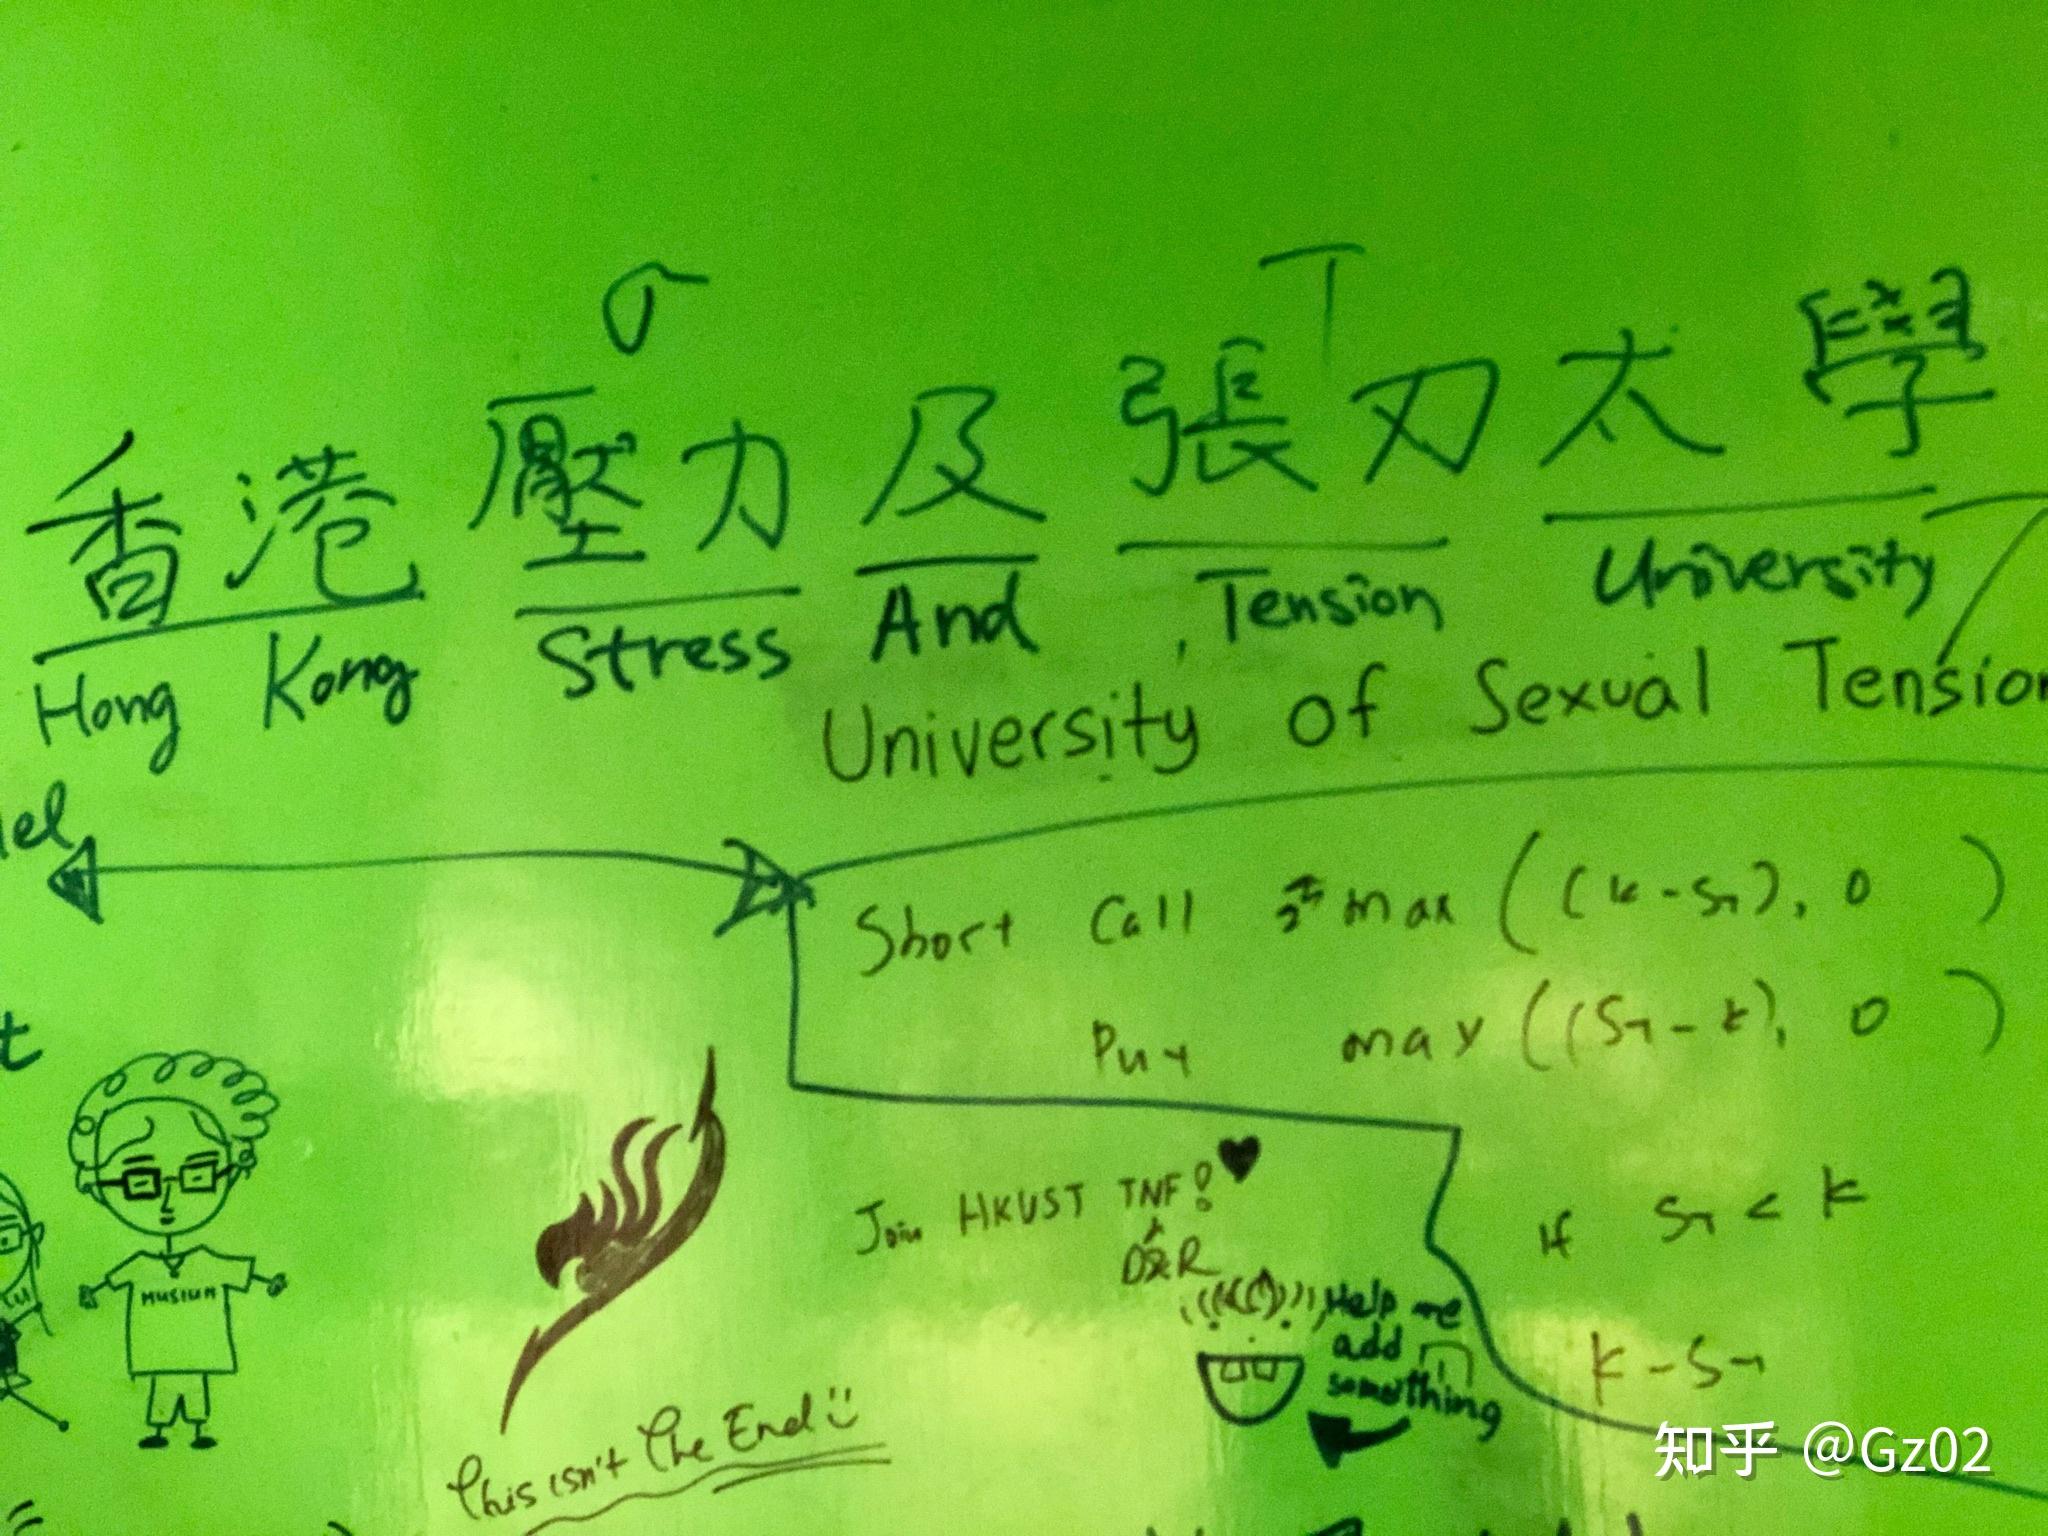 σ T
香港 壓力 及 張刃 太學
Hong Kong Stress And Tension University
University of Sexual Tension
Short Call max ((k-S_T), 0)
Put max ((S_T-k), 0)
Join HKUST TNF!
If S_T < k
Help me
add
something
MUSIUM
k-S_T
This isn't The End
知乎 @Gz02